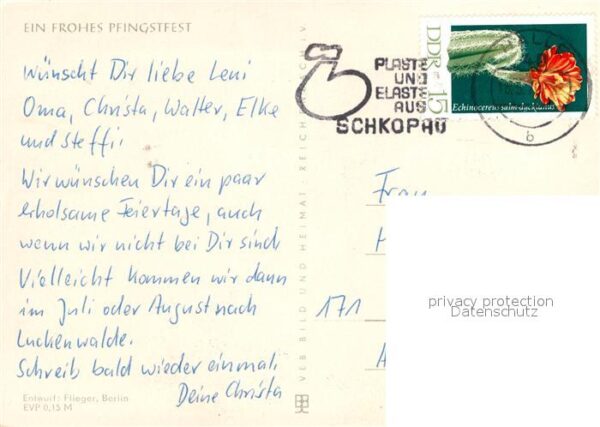 EIN FROHES PFINGSTFEST
wünscht Dir liebe Leni
Oma, Christa, Walter, Elke
und Steffi.
Wir wünschen Dir ein paar
erholsame Feiertage, auch
wenn wir nicht bei Dir sind.
Vielleicht kommen wir dann
im Juli oder August nach
Luckenwalde.
Schreib bald wieder einmal.
Deine Christa
Entwurf: Flieger, Berlin
EVP 0,15 M
VEB BILD UND HEIMAT REICHENBACH
PLASTE
UND
ELASTE
AUS
SCHKOPAU
DDR 15
Echinocereus salm-dyckianus
b
Frau
171
privacy protection
Datenschutz